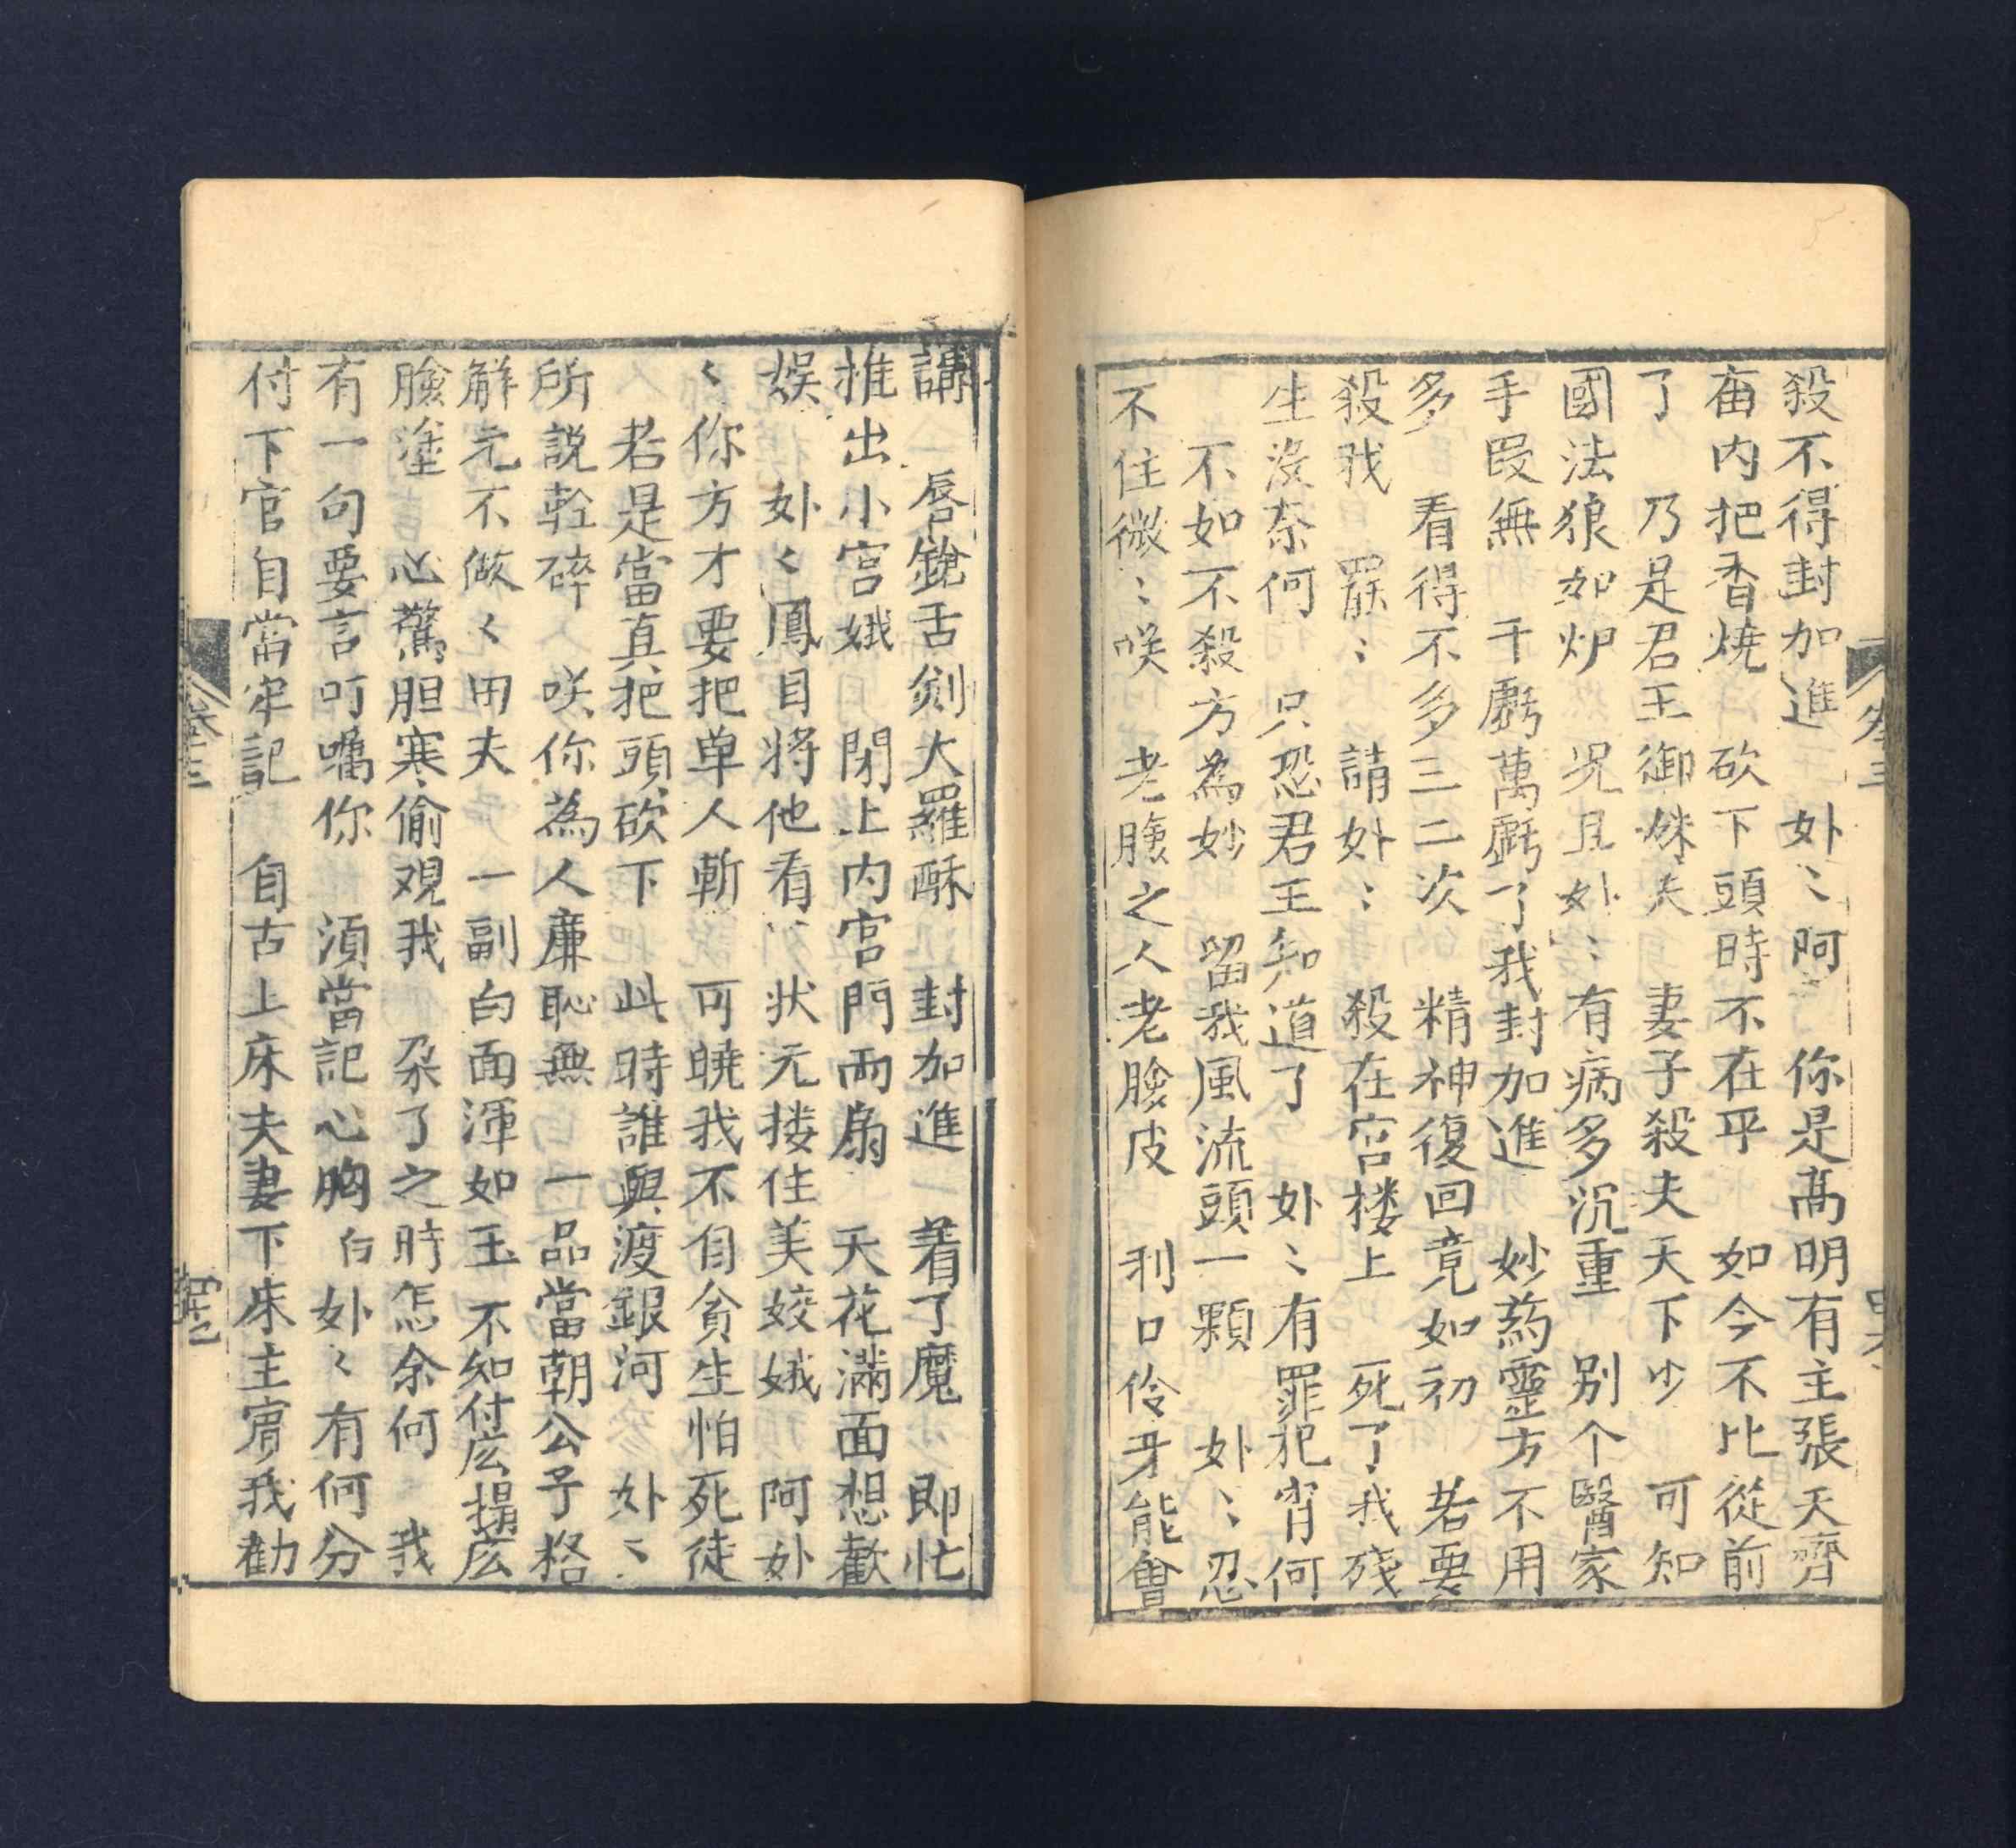 殺不得封加進　奵〻阿　你是髙明有主張天齊
庙内把香燒　砍下頭時不在乎　如今不比從前
了　乃是君王御妹夫　妻子殺夫天下少　可知
國法狼如炉　况且奵〻有病多沉重　别个醫家
手段無　千虧萬虧了我封加進　妙葯靈方不用
多　看得不多三二次　精神復回竟如初　若要
殺我　罷〻請奵〻　殺在宮楼上　死了我残
生没奈何　只恐君王知道了　奵〻有罪犯宵何
不如不殺方為妙　留我風流頭一顆　奵〻忍
不住微〻咲　老臉之人老臉皮　利口伶牙能會
講　唇鎗舌劍大羅酥　封加進　着了魔　即忙
推出小宮娥　閉上内宮門兩扇　天花滿面想歡
娱　奵〻鳳目將他看　状元搂住美姣娥　阿奵
〻你方才要把单人斬　可曉我不自貪生怕死徒
若是當真把頭砍下　此時誰與渡銀河　奵〻
所説輕碎　咲你為人廉恥無　一品當朝公子格
觧元不做〻田夫　一副白面渾如玉　不知付庅搨庅
臉塗　心驚胆寒偷观我　呆了之時怎余何　我
有一句要言叮囑你　須當記心胸白奵〻有何分
付下官自當牢記　自古上床夫妻下床主賓我勸
卷三
卷三